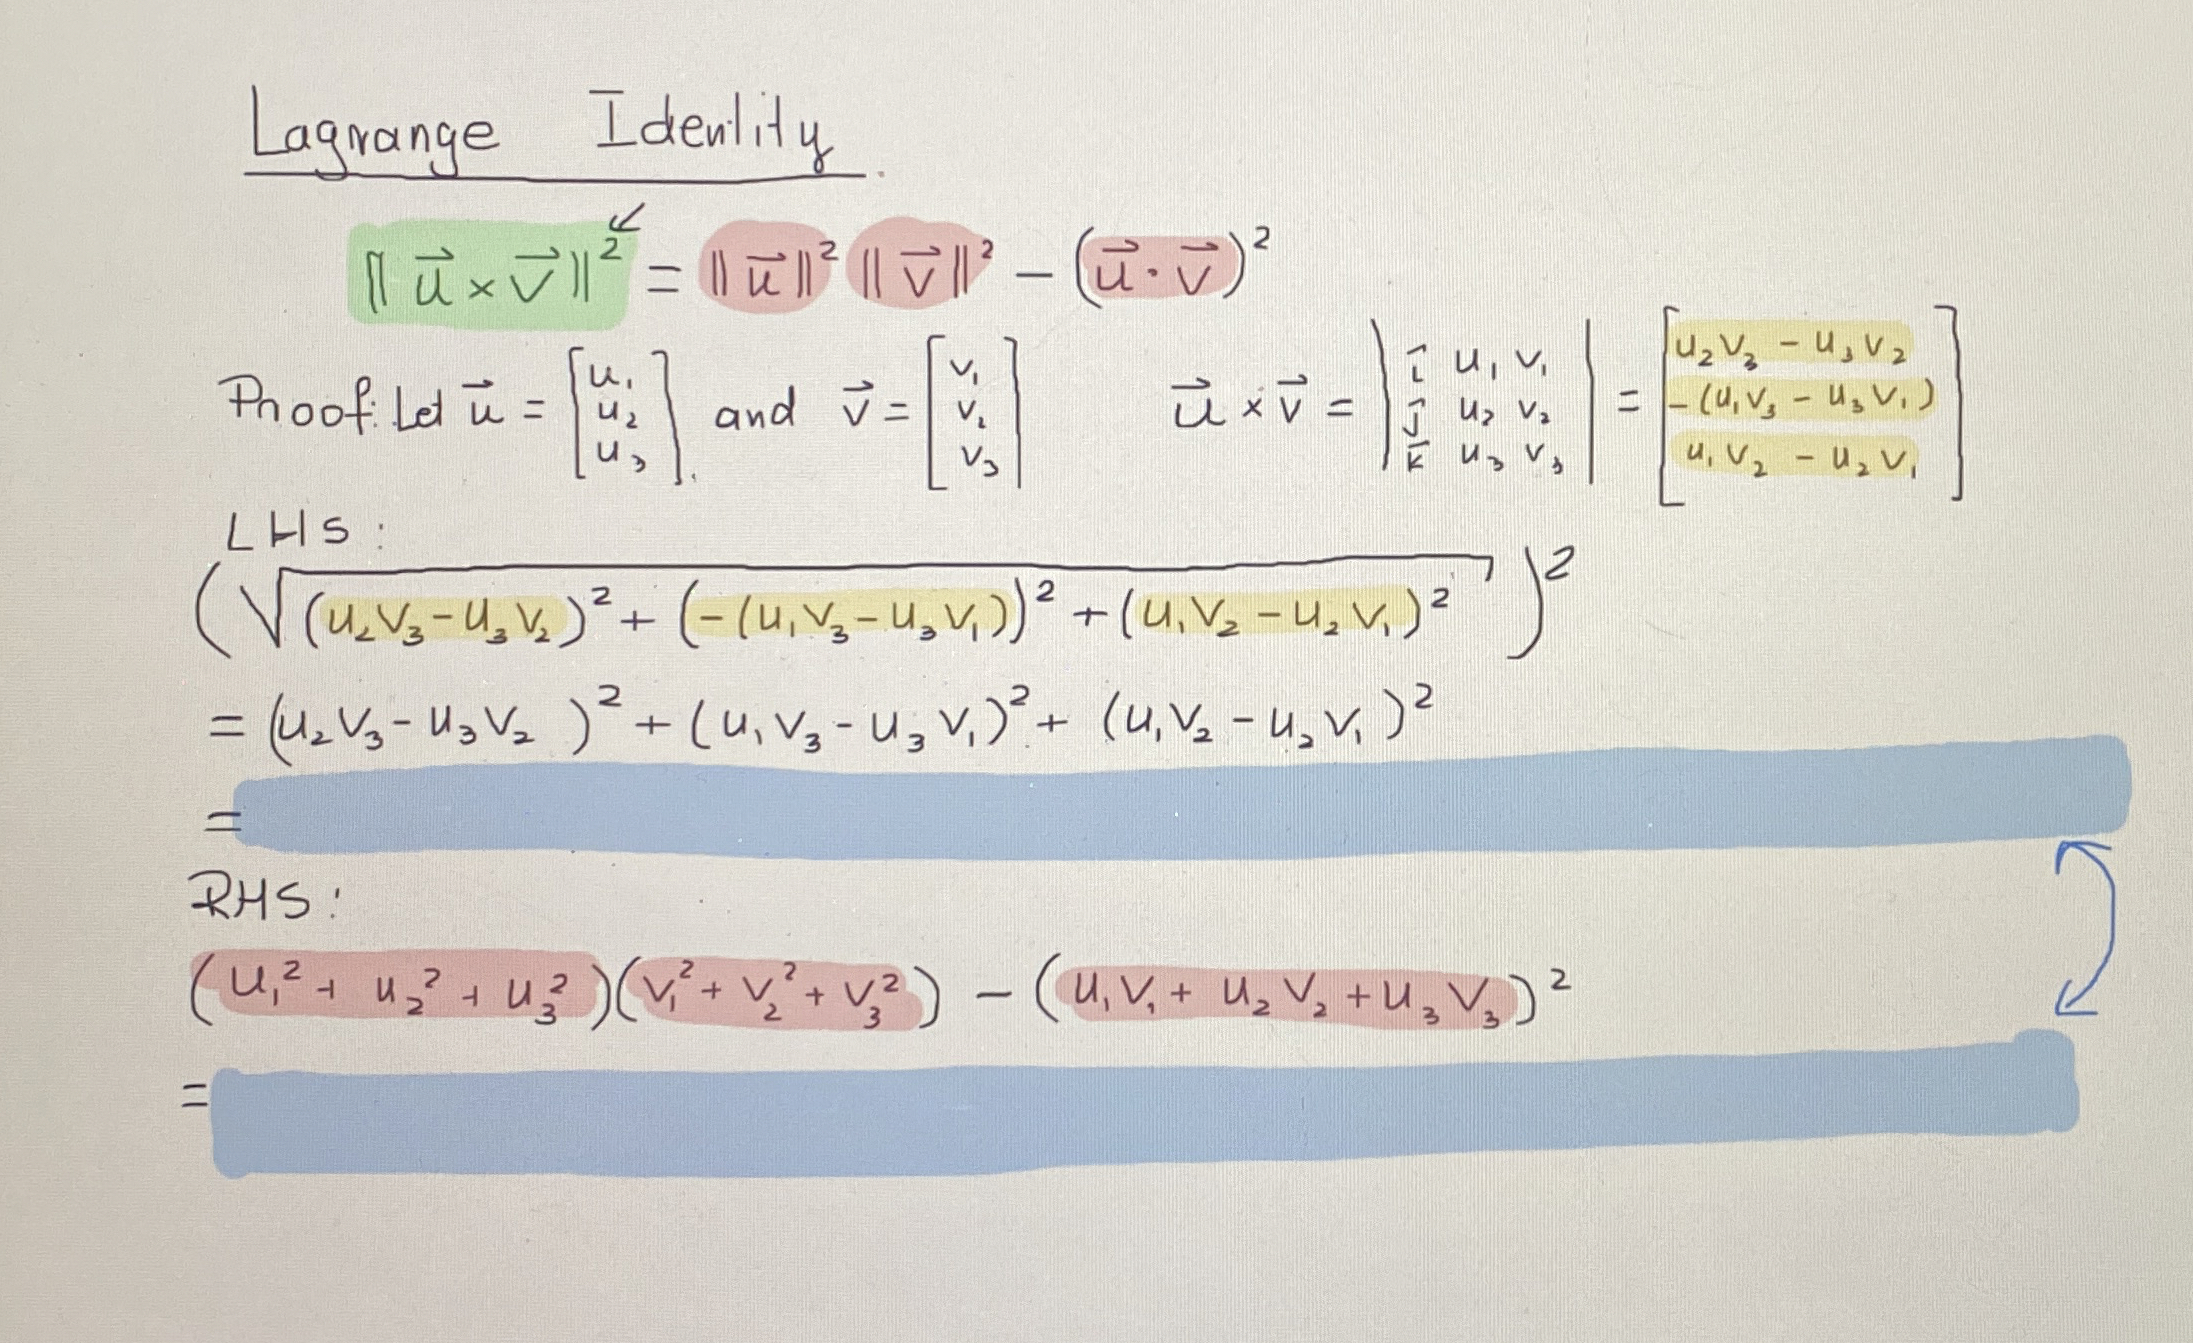 Lagrange Identity
‖u⃗ × v⃗‖² = ‖u⃗‖² ‖v⃗‖² − (u⃗ · v⃗)²
Proof: Let u⃗ = [u₁ u₂ u₃]. and v⃗ = [v₁ v₂ v₃] u⃗ × v⃗ = |î u₁ v₁ ĵ u₂ v₂ k̄ u₃ v₃| = [u₂v₃ − u₃v₂ −(u₁v₃ − u₃v₁) u₁v₂ − u₂v₁]
LHS:
(√((u₂v₃ − u₃v₂)² + (−(u₁v₃ − u₃v₁))² + (u₁v₂ − u₂v₁)²))²
= (u₂v₃ − u₃v₂)² + (u₁v₃ − u₃v₁)² + (u₁v₂ − u₂v₁)²
=
RHS:
(u₁² + u₂² + u₃²)(v₁² + v₂² + v₃²) − (u₁v₁ + u₂v₂ + u₃v₃)²
=